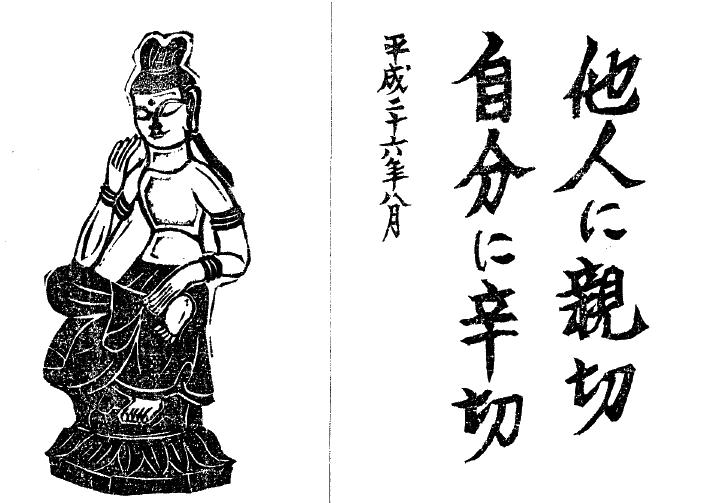 他人に親切
自分に辛切
平成二十六年八月